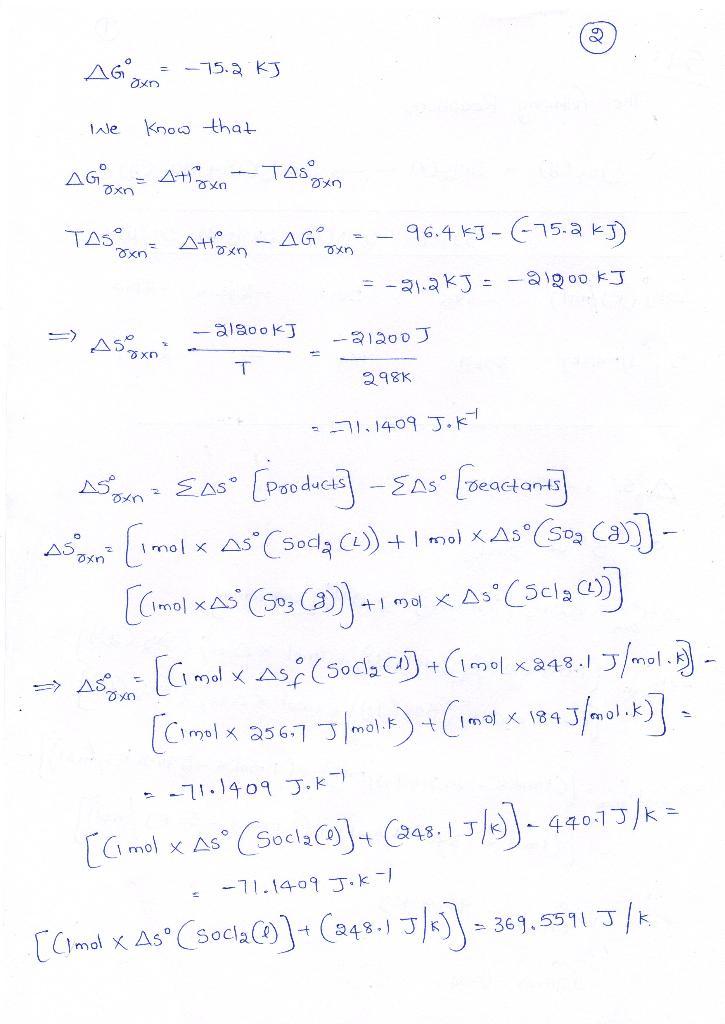 2
ΔG°rxn = -75.2 KJ
We Know that
ΔG°rxn = ΔH°rxn - TΔS°rxn
TΔS°rxn = ΔH°rxn - ΔG°rxn = - 96.4 KJ - (-75.2 KJ)
= -21.2 KJ = -21200 KJ
⇒ ΔS°rxn = -21200KJ / T = -21200 J / 298K
= -71.1409 J.K⁻¹
ΔS°rxn = ΣΔS° [Products] - ΣΔS° [reactants]
ΔS°rxn = [1 mol x ΔS° (SOCl2 (L)) + 1 mol x ΔS° (SO2 (g))] -
[(1mol x ΔS° (SO3 (g))] + 1 mol x ΔS° (SCl2 (L))]
⇒ ΔS°rxn = [(1 mol x ΔS°f (SOCl2 (l)] + (1mol x 248.1 J/mol.K)] -
[(1mol x 256.7 J/mol.K) + (1mol x 184 J/mol.K)] =
= -71.1409 J.K⁻¹
[(1 mol x ΔS° (SOCl2 (l)] + (248.1 J/K)] - 440.7 J/K =
= -71.1409 J.K⁻¹
[(1mol x ΔS° (SOCl2 (l)] + (248.1 J/K)] = 369.5591 J/K